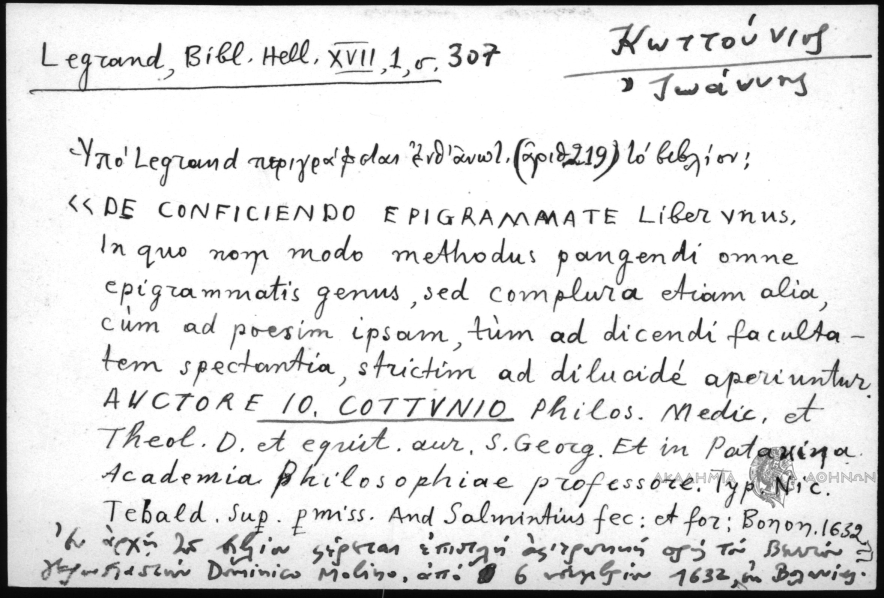 Legrand, Bibl. Hell. XVII, 1, σ. 307
Κωττούνιος
Ἰωάννης
Ὑπό Legrand περιγράφεται ἐνθ' ἀνωτ. (ἀριθ. 219) τό βιβλίον:
<< DE CONFICIENDO EPIGRAMMATE Liber vnus.
In quo non modo methodus pangendi omne
epigrammatis genus, sed complura etiam alia,
cùm ad poesim ipsam, tùm ad dicendi faculta-
tem spectantia, strictim ad dilucidé aperiuntur.
AVCTORE IO. COTTVNIO Philos. Medic. et
Theol. D. et equit. aur. S. Georg. Et in Patauina
Academia Philosophiae professore. Typ. Nic.
ΑΚΑΔΗΜΙΑ ΑΘΗΝΩΝ
Tebald. Sup. pmiss. And Salmintius fec: et for: Bonon. 1632
Ἐν ἀρχῇ τοῦ βιβλίου φέρεται ἐπιστολή πρός τόν
Dominico Molino, ἀπό 6 1632,